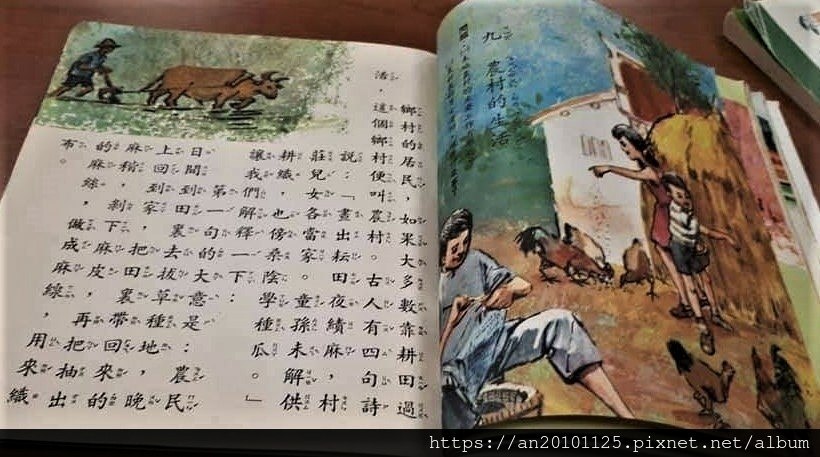 九 農村的生活
鄉村的居民,如果大多數靠耕田過
活,這個鄉村便叫農村。古人有四句詩
說:「晝出耘田夜績麻,村
莊兒女各當家。童孫未解供
耕織,也傍桑陰學種瓜。」
讓我們解釋一下:
第一句的大意是:農民
日間到田裏去拔草種地,晚
上回到家裏,把田裏帶回來的
麻稍,剝下麻皮,再把抽出
的麻絲,做成麻線,用來織
布。
https://an20101125.pixnet.net/album